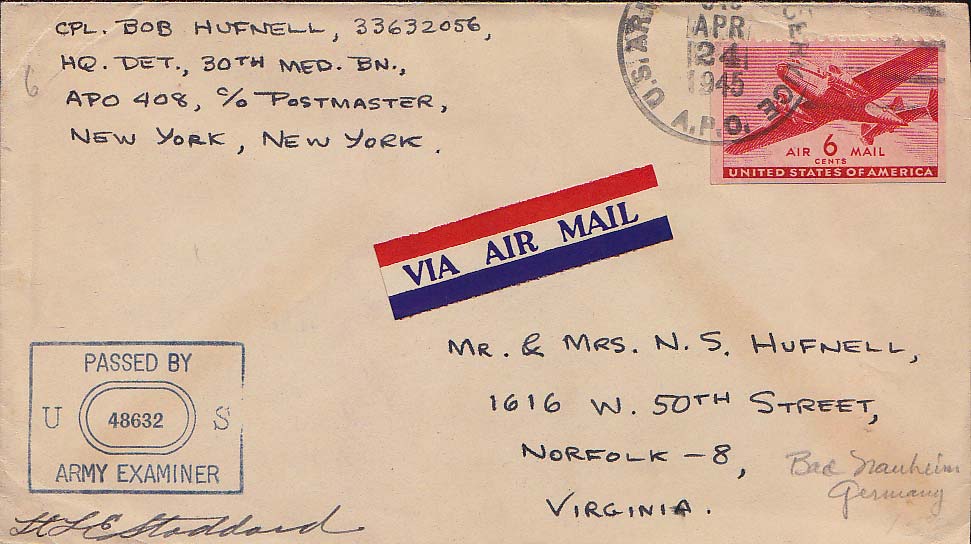 CPL. BOB HUFNELL, 33632056,
HQ. DET., 30TH MED. BN.,
APO 408, C/O POSTMASTER,
NEW YORK, NEW YORK.
6
U.S. ARMY SERVICE
APR
24
1945
A.P.O.
AIR 6 MAIL
CENTS
UNITED STATES OF AMERICA
VIA AIR MAIL
MR. & MRS. N. S. HUFNELL,
1616 W. 50TH STREET,
NORFOLK - 8,
VIRGINIA.
Bad Nauheim
Germany
PASSED BY
U 48632 S
ARMY EXAMINER
Lt L E Stoddard